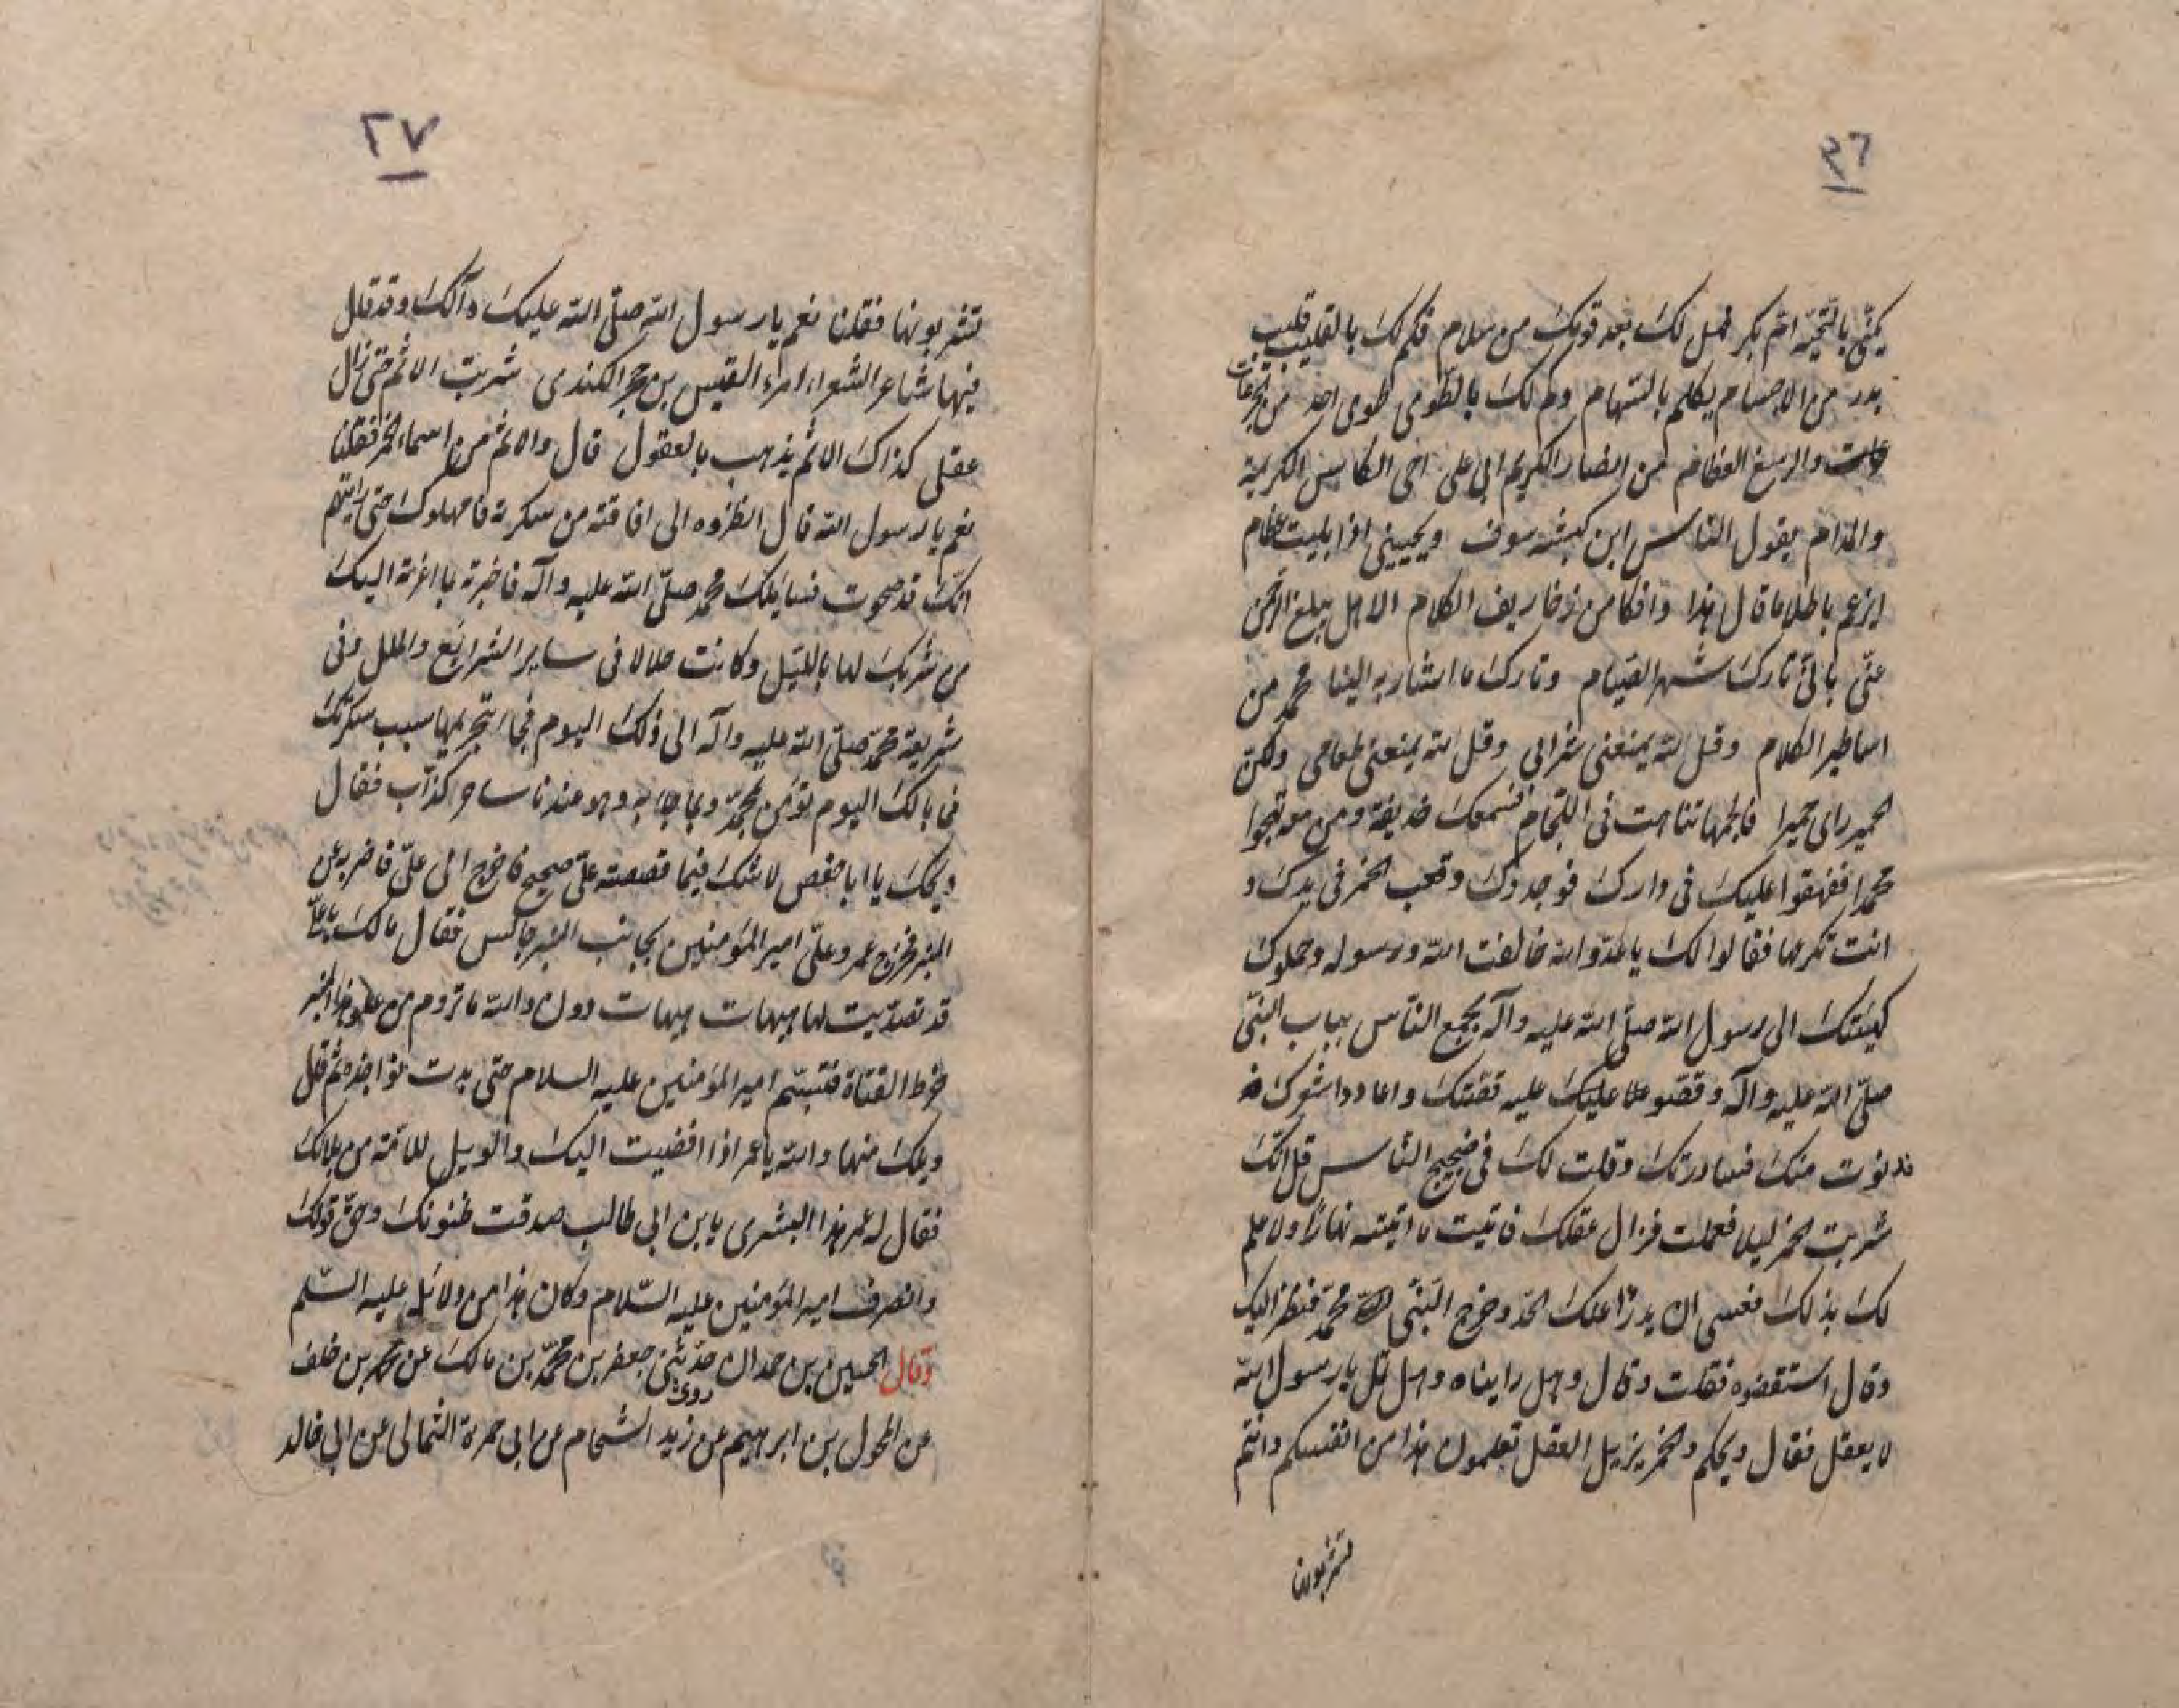 ٢٦
يكنى بالتحية ام بكر فهل لك بعد قومك من سلام فكم لك بالقليب قليب
بدر من الاجسام يكلم بالسهام وكم لك بالطوى طوى احد من الجرعات
والدسع العظام من انصار الكريم ابى على اخى الكاس الكريمة
والمدام يقول الناس ابن كبشه سوف ويحييني اذا بليت عظام
ايزعم باطلا ما قال هذا وافكا من زخاريف الكلام الا هل مبلغ الرحمن
عنى بانى تارك شهر الصيام وتارك ما اشار به الينا محمد من
اساطير الكلام وقل لله يمنعنى شرابى وقل لله يمنعنى طعامى ولكن
الحمير راى حميرا فالجمها تتاهت فى اللجام فسمعك حذيفة ومن معه تهجوا
محمدا ففهقوا عليك فى دارك فوجدوك وقعب الخمر فى يدك و
انت تكرعها فقالوا لك يا عدو الله خالفت الله ورسوله وحملوك
كهيئتك الى رسول الله صلى الله عليه وآله بجمع الناس بباب النبى
صلى الله عليه وآله وقصوا عليك عليه قصتك واعادوا شعرك
فدنوت منك فساررتك وقلت لك فى ضجيج الناس قل انك
شربت الخمر ليلا فعملت فزال عقلك فاتيت ما اتيته نهارا ولا علم
لك بذلك فعسى ان يدرأ عنك الحد وخرج النبى محمد فنظر اليك
وقال استقضوه فقلت وقال وهل رايناه وهل ثمل يا رسول الله
لا يعقل فقال ويحكم والخمر يزيل العقل تعلمون هذا من انفسكم وانتم
تشربونها
٢٧
تشربونها فقلنا نعم يا رسول الله صلى الله عليك وآلك وقد قال
فيها شاعر الشعراء امرء القيس بن حجر الكندى شربت الاثم حتى زال
عقلى كذاك الاثم يذهب بالعقول قال والاثم من اسماء الخمر فقلنا
نعم يا رسول الله قال انظروه الى افاقته من سكرته فامهلوك حتى رايتهم
انك قد صحوت فسايلك محمد صلى الله عليه وآله فاخبرته بما اغرته اليك
من شربك لها بالليل وكانت حلالا فى ساير الشرايع والملل وفى
شريعة محمد صلى الله عليه وآله الى ذلك اليوم فجاء تحريمها سبب سكرتك
فما بالك اليوم تؤمن بمحمد وبما جاء به وهو عندنا ساحر كذاب فقال
ويحك يا ابا حفص لا شك فيما قصصته على صحيح فاخرج الى على فاضربه عن
المنبر فخرج عمر وعلى امير المؤمنين بجانب المنبر جالس فقال مالك يا على
قد تصديت لها هيهات هيهات دون والله ما تروم من علو هذا المنبر
خرط القتاة فتبسم امير المؤمنين عليه السلام حتى بدت نواجذه ثم قال
ويلك منها والله يا عمر اذا افضيت اليك والويل للامة من بلائك
فقال له عمر هذا البشرى يا بن ابى طالب صدقت ظنونك وحق قولك
وانصرف امير المؤمنين عليه السلام وكان هذا من دلائل عليه السلم
وقال الحسين بن حمدان حدثنى جعفر بن محمد بن مالك عن محمد بن خلف
عن المخول بن ابرهيم عن زيد الشحام روى عن ابى حمزة الثمالى عن ابى خالد